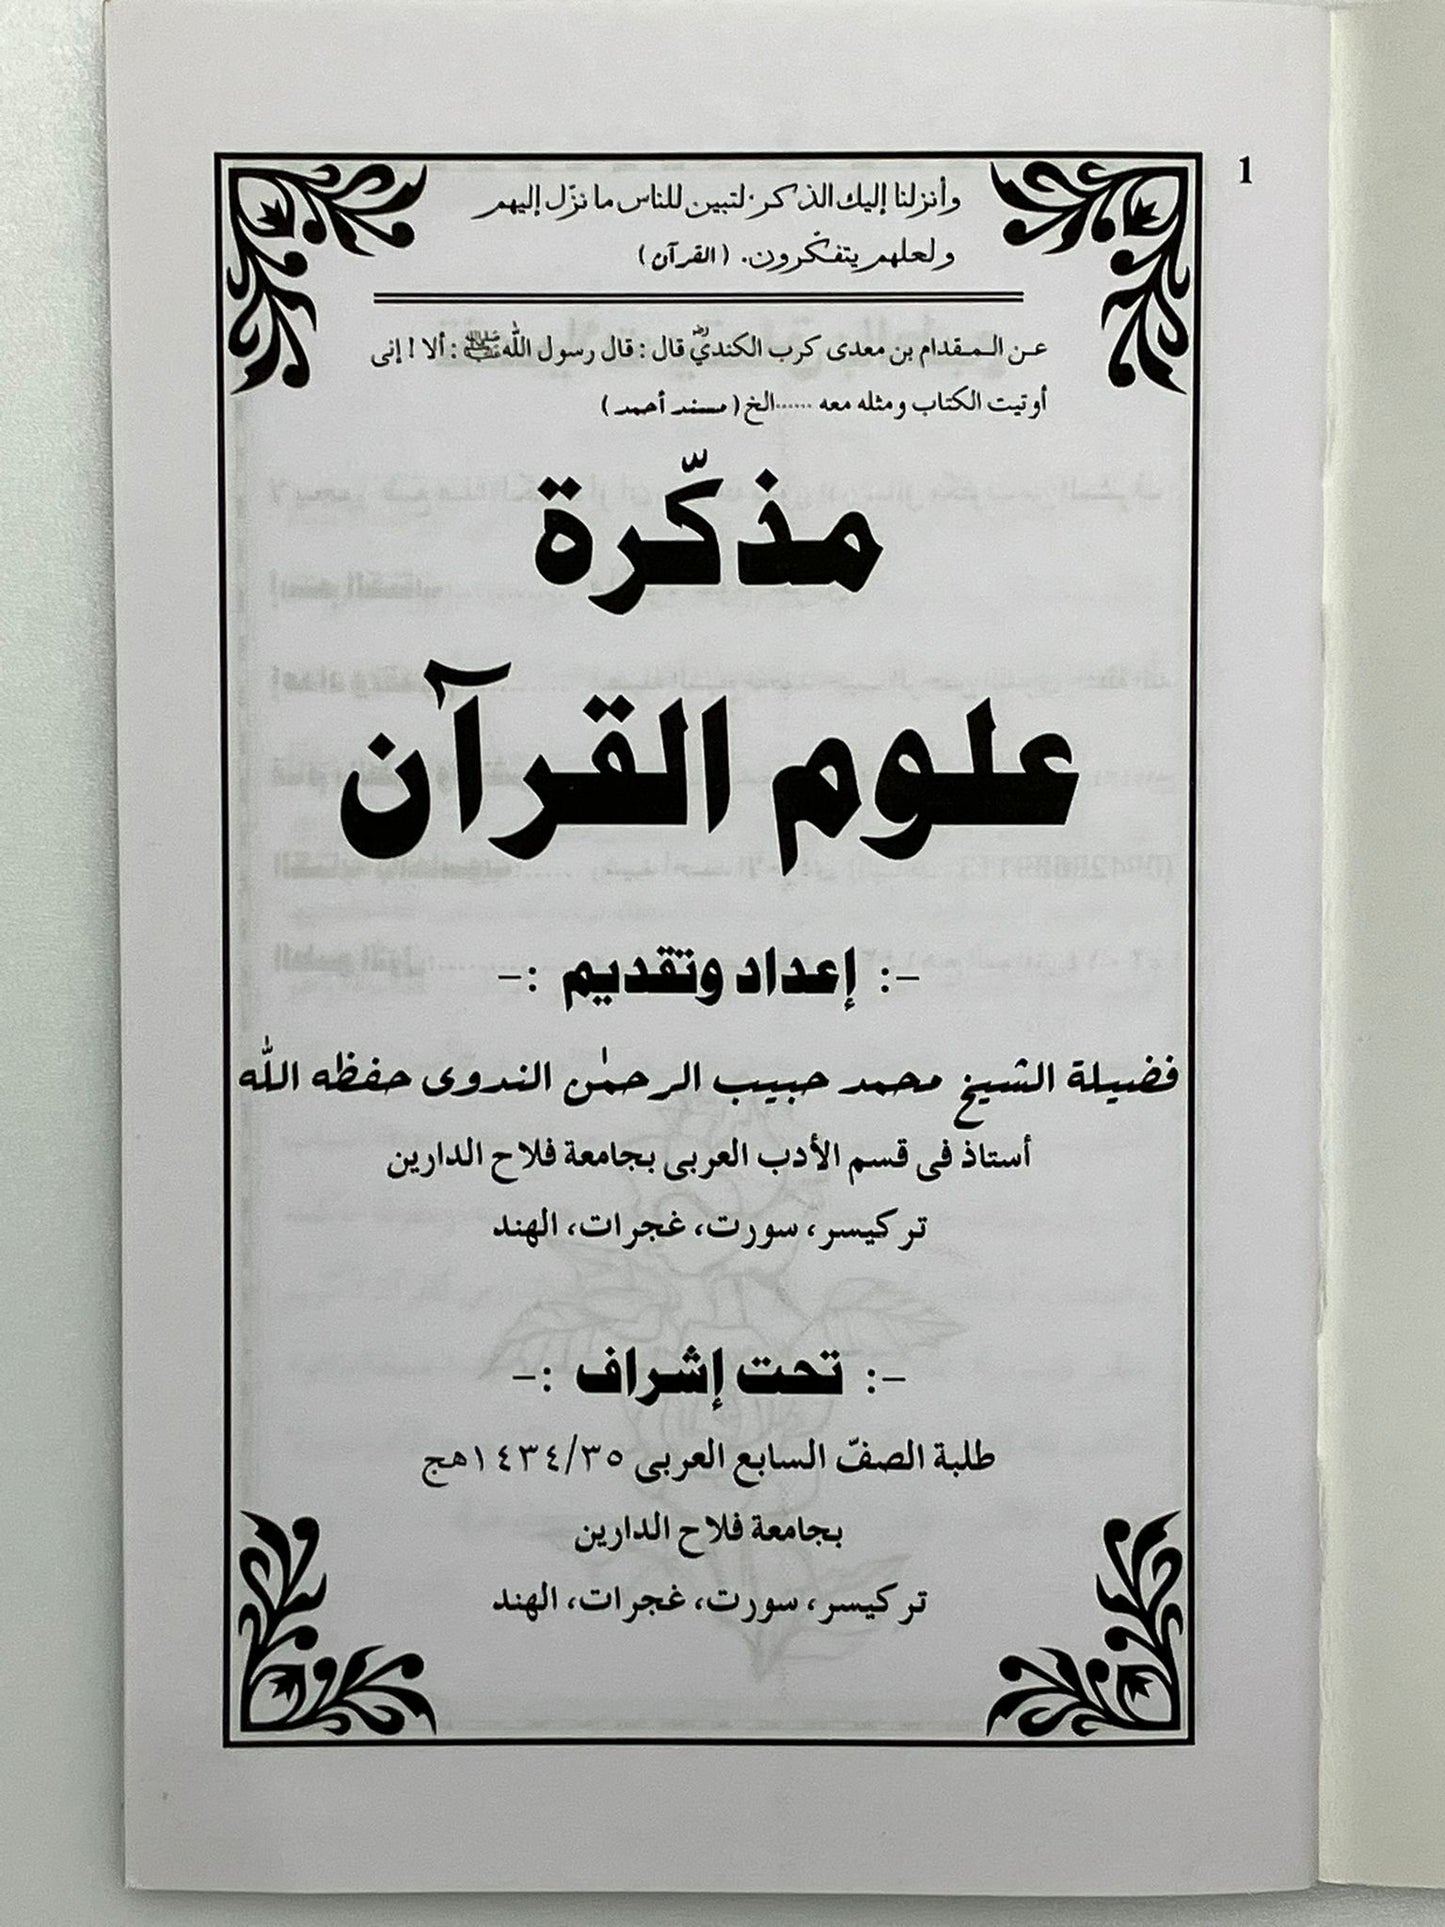 1
وأنزلنا إليك الذكر لتبين للناس ما نزّل إليهم
ولعلهم يتفكّرون. (القرآن)
عن المقدام بن معدى كرب الكنديؓ قال : قال رسول اللّٰه ﷺ : ألا ! إنى
أوتيت الكتاب ومثله معه ......الخ (مسند أحمد)
مذكّرة
علوم القرآن
-: إعداد وتقديم :-
فضيلة الشيخ محمد حبيب الرحمٰن الندوى حفظه اللّٰه
أستاذ فى قسم الأدب العربى بجامعة فلاح الدارين
تركيسر، سورت، غجرات، الهند
-: تحت إشراف :-
طلبة الصفّ السابع العربى ١٤٣٤/٣٥هج
بجامعة فلاح الدارين
تركيسر، سورت، غجرات، الهند